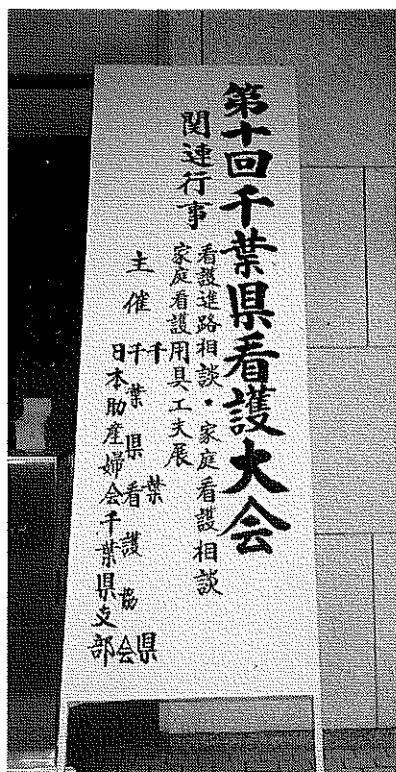 第十回千葉県看護大会
関連行事
看護進路相談・家庭看護相談
家庭看護用具工夫展
主催
千葉県
千葉県看護協会
日本助産婦会千葉県支部